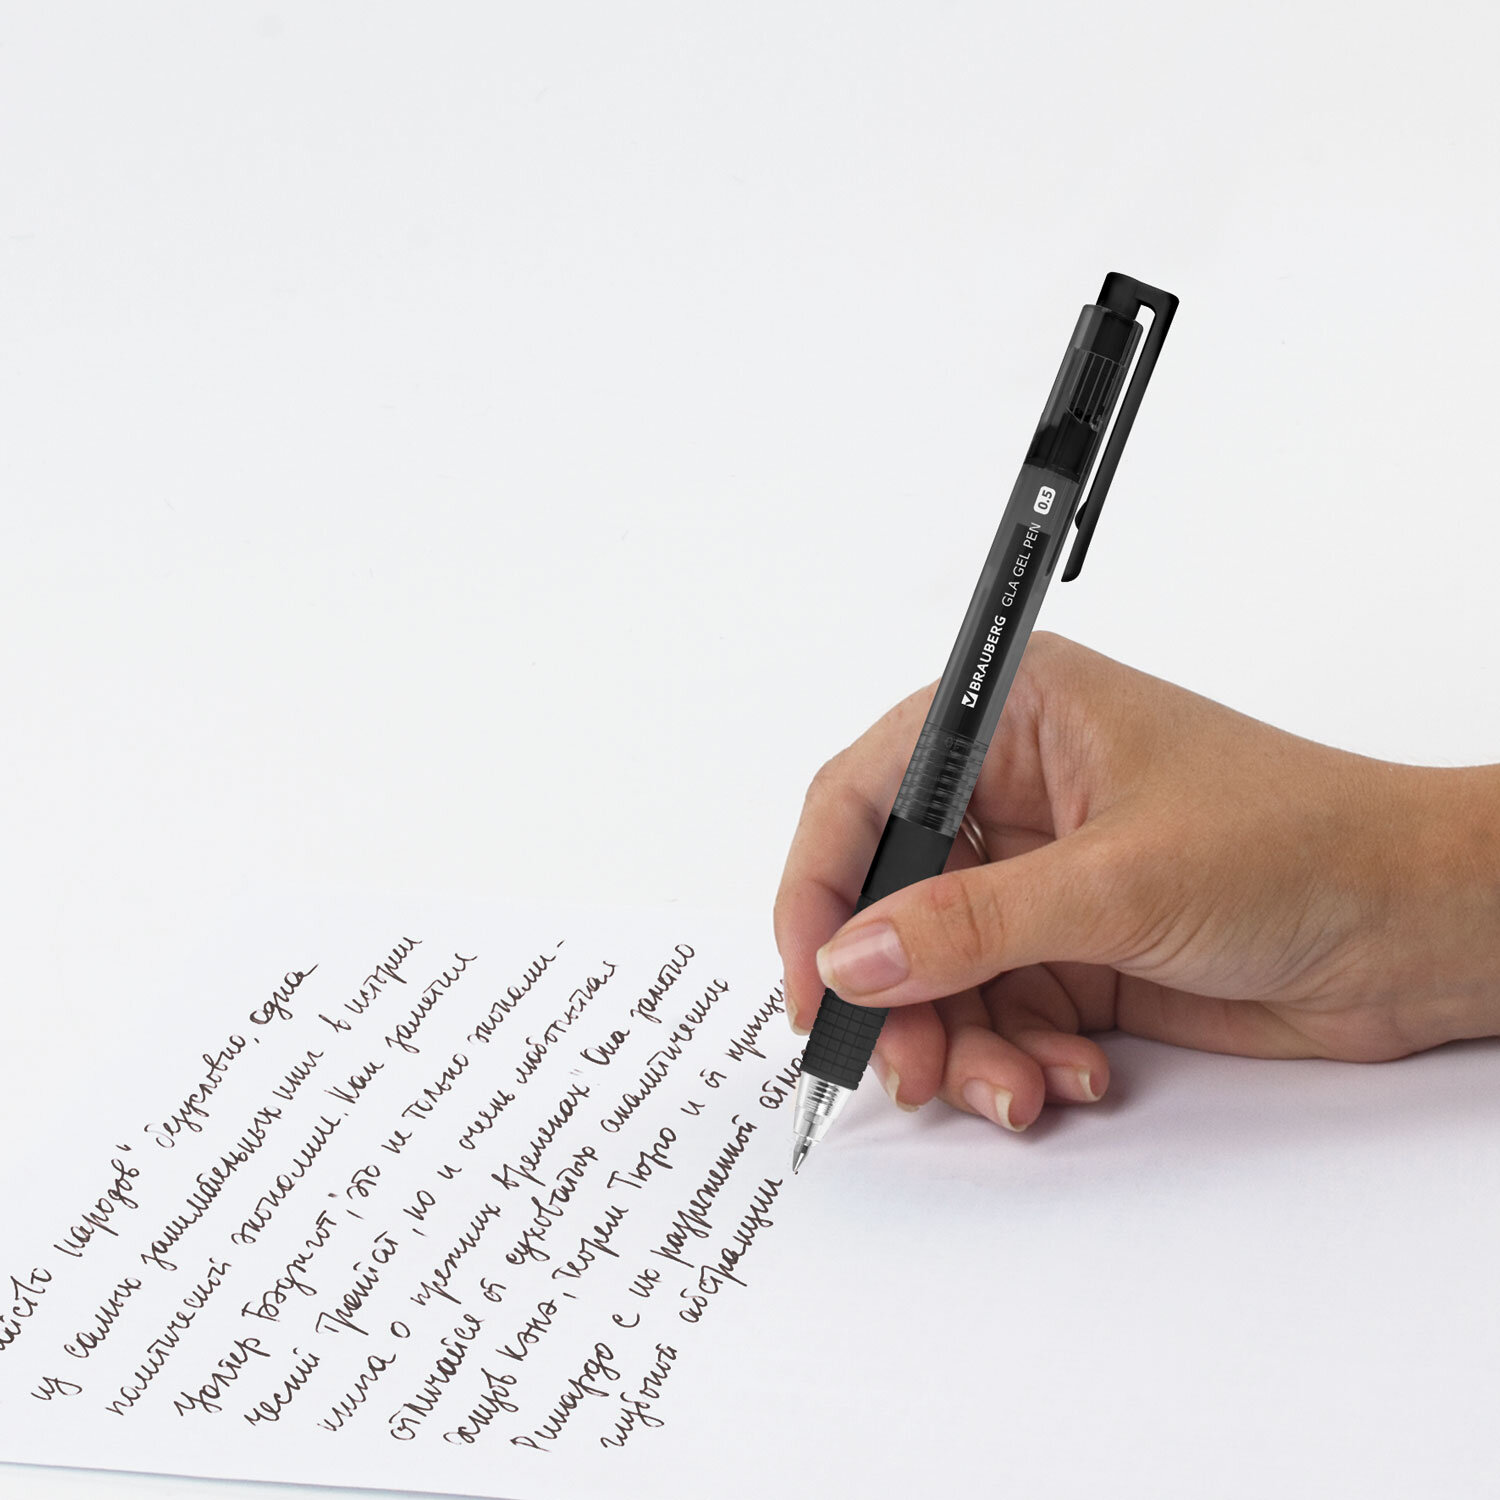 BRAUBERG GLA GEL PEN 0.5
народов" безусловно, одна
из самых занимательных книг в истории
политической экономии. Как заметил
Уолтер Бэджгот, "это не только экономи-
ческий трактат, но и очень любопытная
книга о прежних временах". Она заметно
отличается от суховатых аналитических
эссеров Кэнэ, Теорем Тюрго и от
Рикардо с их разреженной
глубокой абстракции